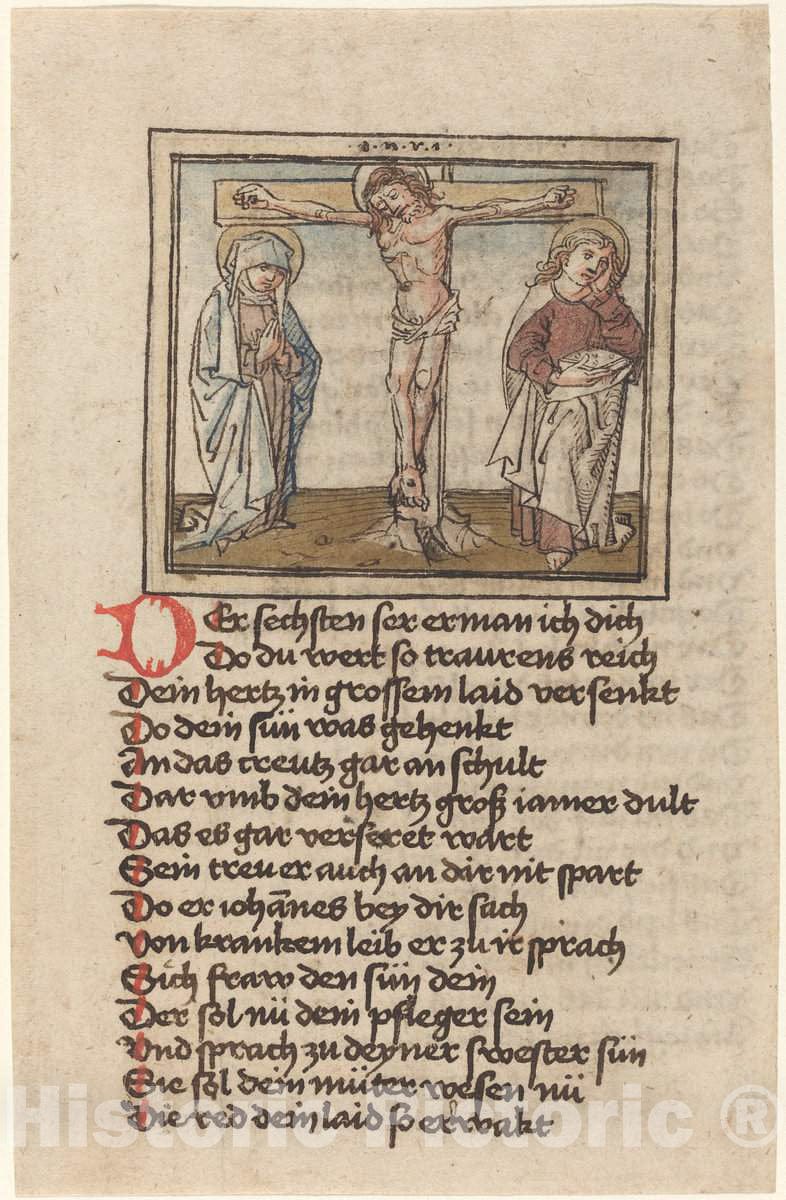 ·i·n·r·i·
DEr sechsten ser erman ich dich
Do du wert so traurens reich
Dein hertz in grossem laid versenkt
Do dein sün was gehenkt
An das creutz gar an schult
Dar vmb dein hertz groß iamer dult
Das es gar verseret wart
Sein treu er auch an dir nit spart
Do er iohānes bey dir sach
Von krankem leib er zu ir sprach
Sich fraw den sün dein
Der sol nü dein pfleger sein
Vnd sprach zu deyner swester sün
Sie sol dein müter wesen nü
Die red dein laid so erwakt
Historic Pictoric ®